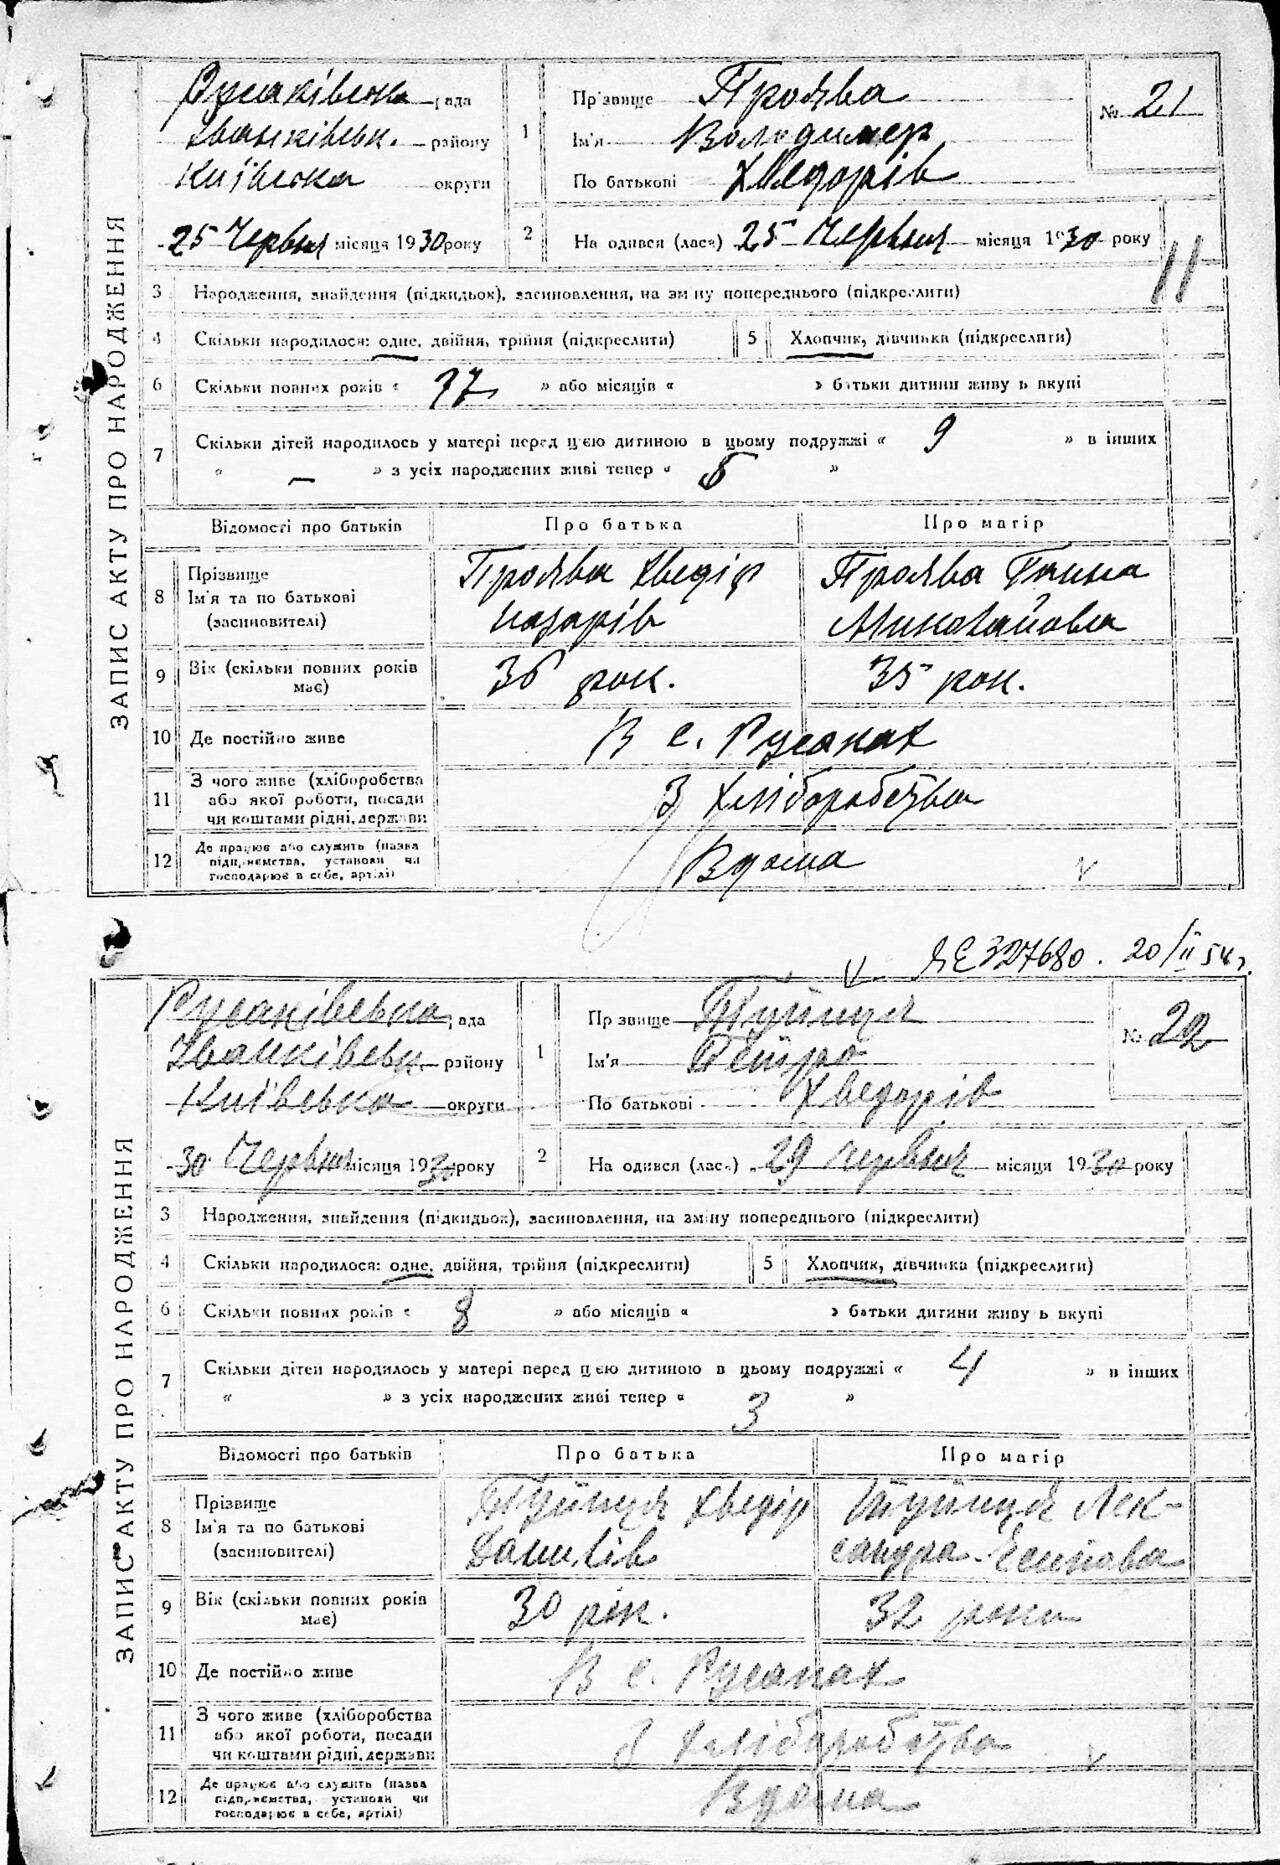 ЗАПИС АКТУ ПРО НАРОДЖЕННЯ
Русаківська рада
Іванківськ. району
Київська округи
25 Червня місяця 1930 року
1 Прізвище Проява
Ім'я Володимер
По батькові Хведорів
№ 21
2 На одився (лася) 25 Червня місяця 1930 року
3 Народження, знайдення (підкидьок), засиновлення, на зміну попереднього (підкреслити)
4 Скільки народилося: одне, двійня, трійня (підкреслити) 5 Хлопчик, дівчинка (підкреслити)
6 Скільки повних років « 17 » або місяців « » батьки дитини живу ь вкупі
7 Скільки дітей народилось у матері перед цією дитиною в цьому подружжі « 9 » в інших
« — » з усіх народжених живі тепер « »
Відомості про батьків Про батька Про матір
8 Прізвище
Ім'я та по батькові
(засиновителі)
Проява Хведір
Назарів
Проява Ганна
Миколайовна
9 Вік (скільки повних років
має)
36 рок. 35 рок.
10 Де постійно живе В с. Русаках
11 З чого живе (хліборобства
або якої роботи, посади
чи коштами рідні, держави
З Хліборобства
12 Де працює або служить (назва
підприємства, установи чи
господарює в себе, артілі)
Вдома
ЯЕ 327680. 20/II 54 г.
ЗАПИС АКТУ ПРО НАРОДЖЕННЯ
Русаківська рада
Іванківськ. району
Київська округи
30 Червня місяця 1930 року
1 Прізвище Тупиця
Ім'я Петро
По батькові Хведорів
№ 22
2 На одився (лася) 29 червня місяця 1930 року
3 Народження, знайдення (підкидьок), засиновлення, на зміну попереднього (підкреслити)
4 Скільки народилося: одне, двійня, трійня (підкреслити) 5 Хлопчик, дівчинка (підкреслити)
6 Скільки повних років « 8 » або місяців « » батьки дитини живу ь вкупі
7 Скільки дітей народилось у матері перед цією дитиною в цьому подружжі « 4 » в інших
« » з усіх народжених живі тепер « 3 »
Відомості про батьків Про батька Про матір
8 Прізвище
Ім'я та по батькові
(засиновителі)
Тупиця Хведір
Данилів
Тупиця Лек-
сандра Есипова
9 Вік (скільки повних років
має)
30 рок. 32 роки
10 Де постійно живе В с. Русаках
11 З чого живе (хліборобства
або якої роботи, посади
чи коштами рідні, держави
З Хліборобства
12 Де працює або служить (назва
підприємства, установи чи
господарює в себе, артілі)
Вдома